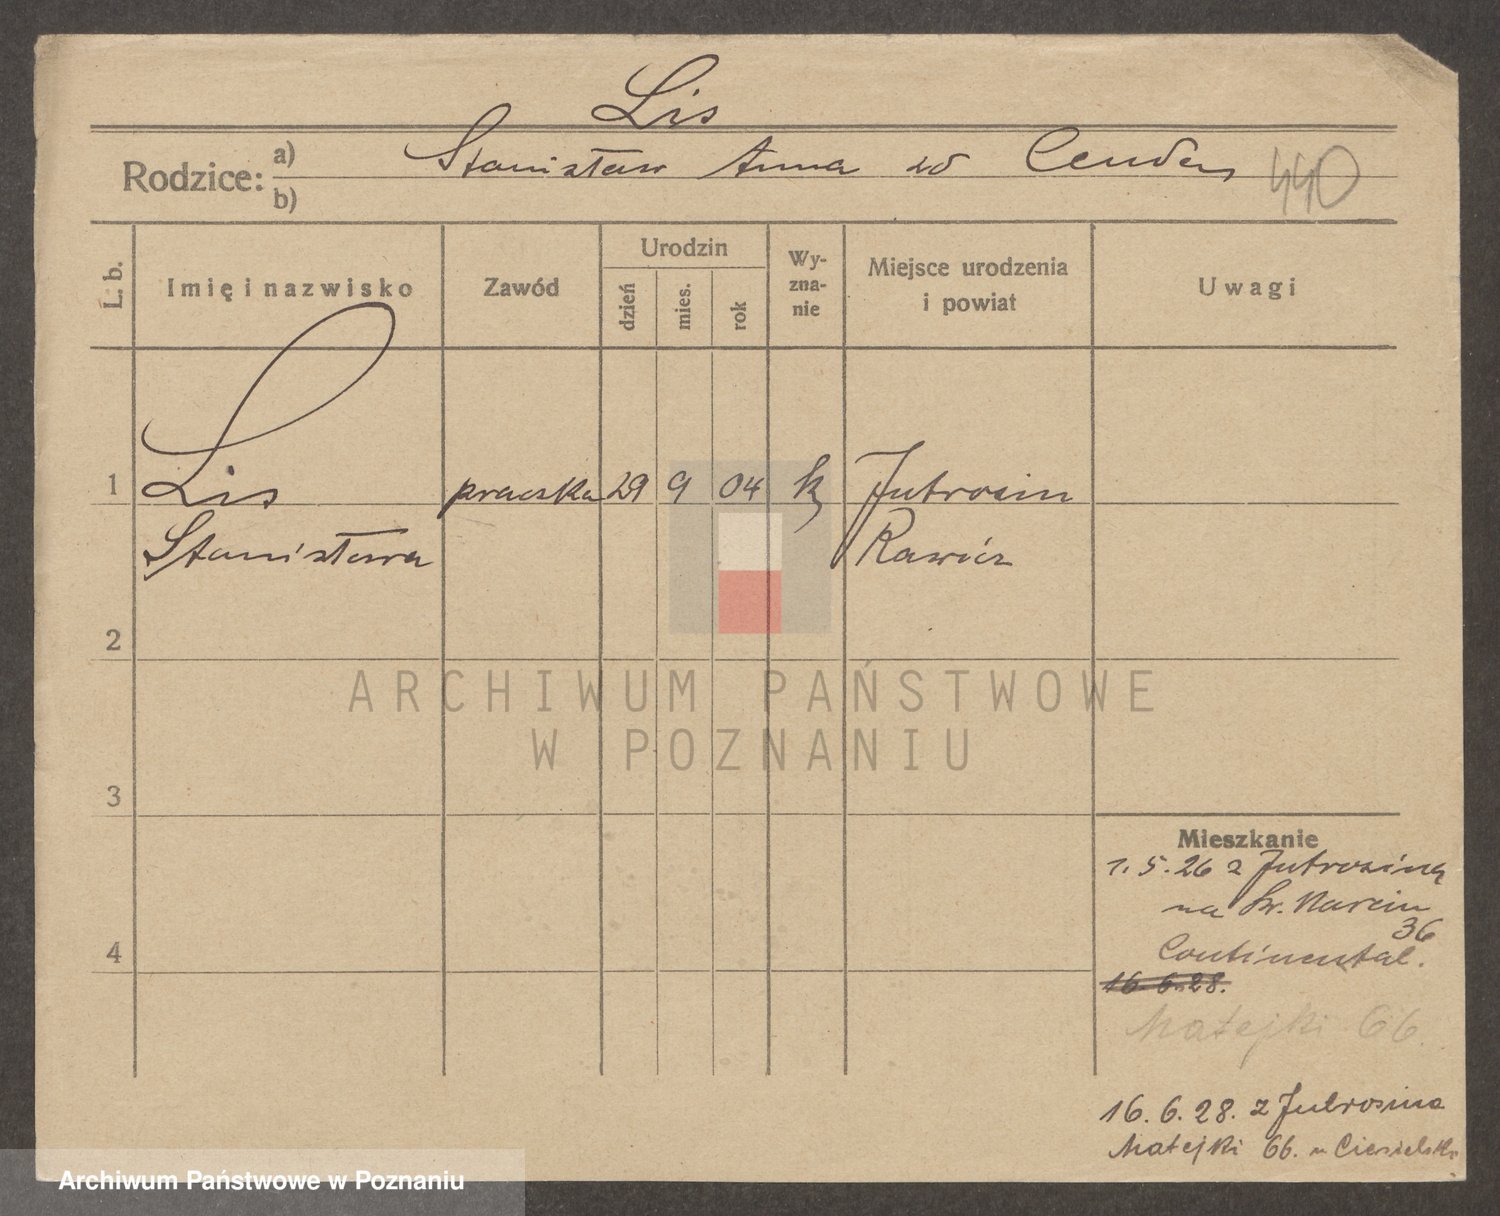 Lis
Rodzice: a) Stanisław Anna zd
b)
440
L. b.
Imię i nazwisko
Zawód
Urodzin
dzień
mies.
rok
Wy-
zna-
nie
Miejsce urodzenia
i powiat
Uwagi
1 Lis praczka 29 9 04 k Jutrosin
Stanisława Rawicz
2
3
4
Mieszkanie
1. 5. 26 z Jutrosina
na Św. Marcin
36
Continental.
16 6. 28.
Matejki 66.
16. 6. 28. z Jutrosina
Matejki 66. u
ARCHIWUM PAŃSTWOWE
W POZNANIU
Archiwum Państwowe w Poznaniu